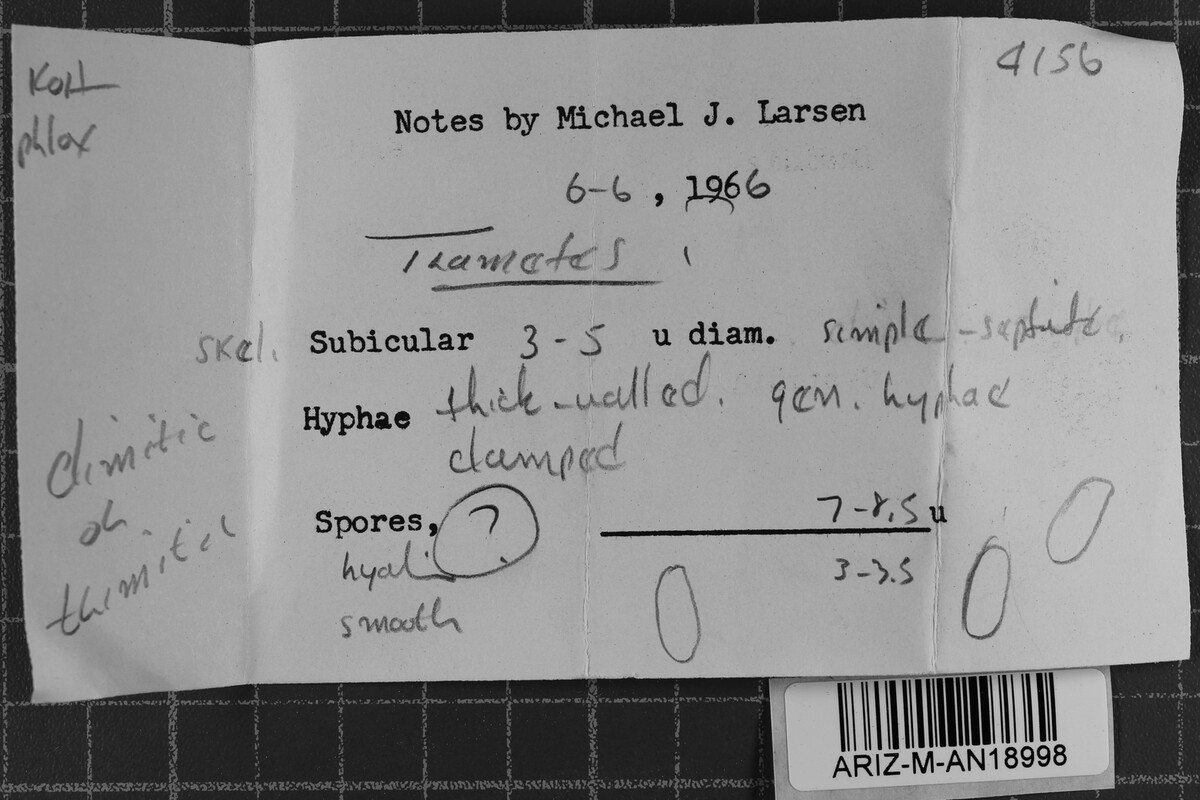 KOH
phlox
4156
Notes by Michael J. Larsen
6-6, 1966
Trametes
skel. Subicular 3-5 u diam. simple-septate,
Hyphae thick-walled. gen. hyphae
clamped
dimitic
or
trimitic
Spores, ? 7-8.5 u
hyali
3-3.5
smooth
ARIZ-M-AN18998